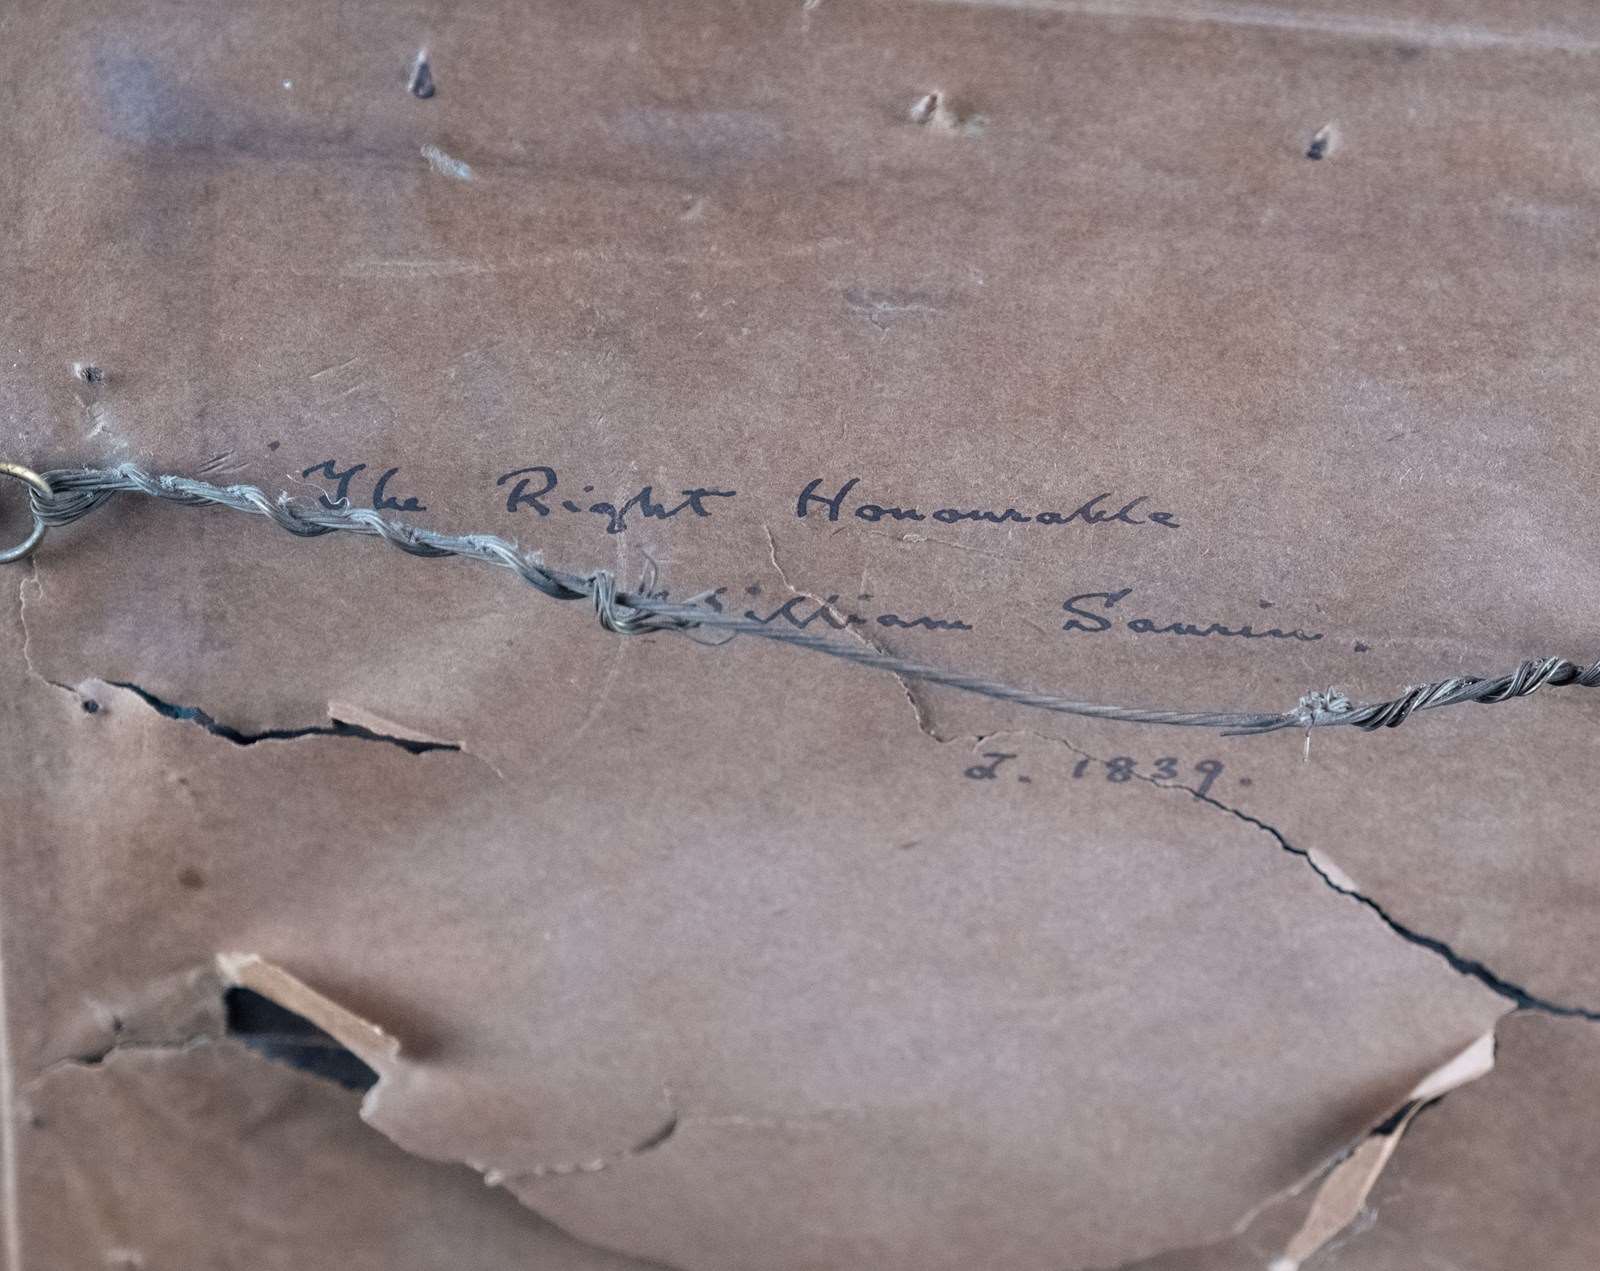 The Right Honourable
William Saurin.
I. 1839.